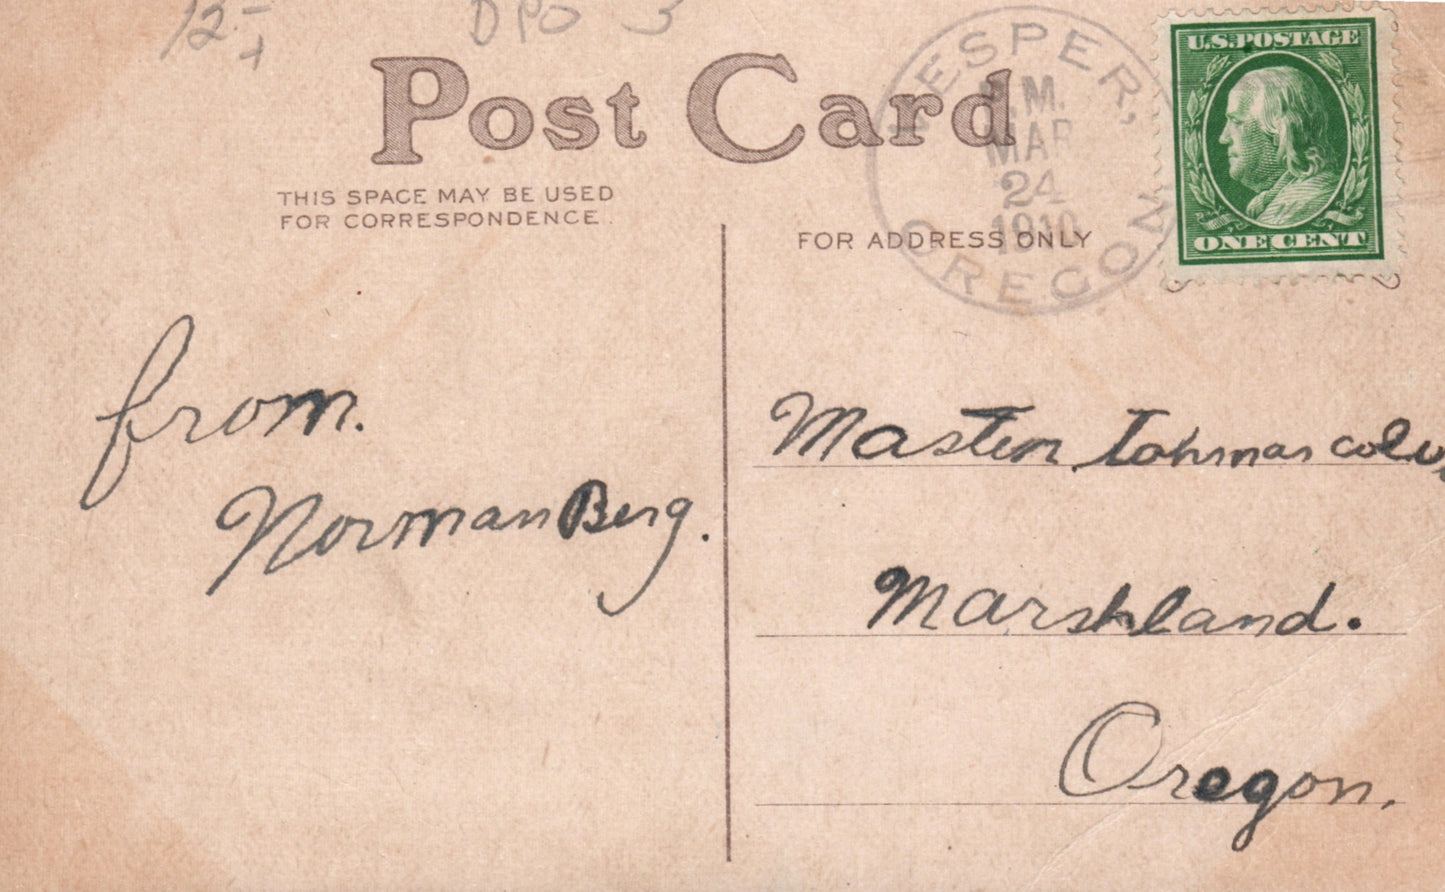 12-
DPO 3
Post Card
VESPER,
.M.
MAR
24
1910
OREGON
U.S.POSTAGE
ONE CENT
THIS SPACE MAY BE USED
FOR CORRESPONDENCE.
FOR ADDRESS ONLY
from.
Norman Berg.
Marshland.
Oregon.